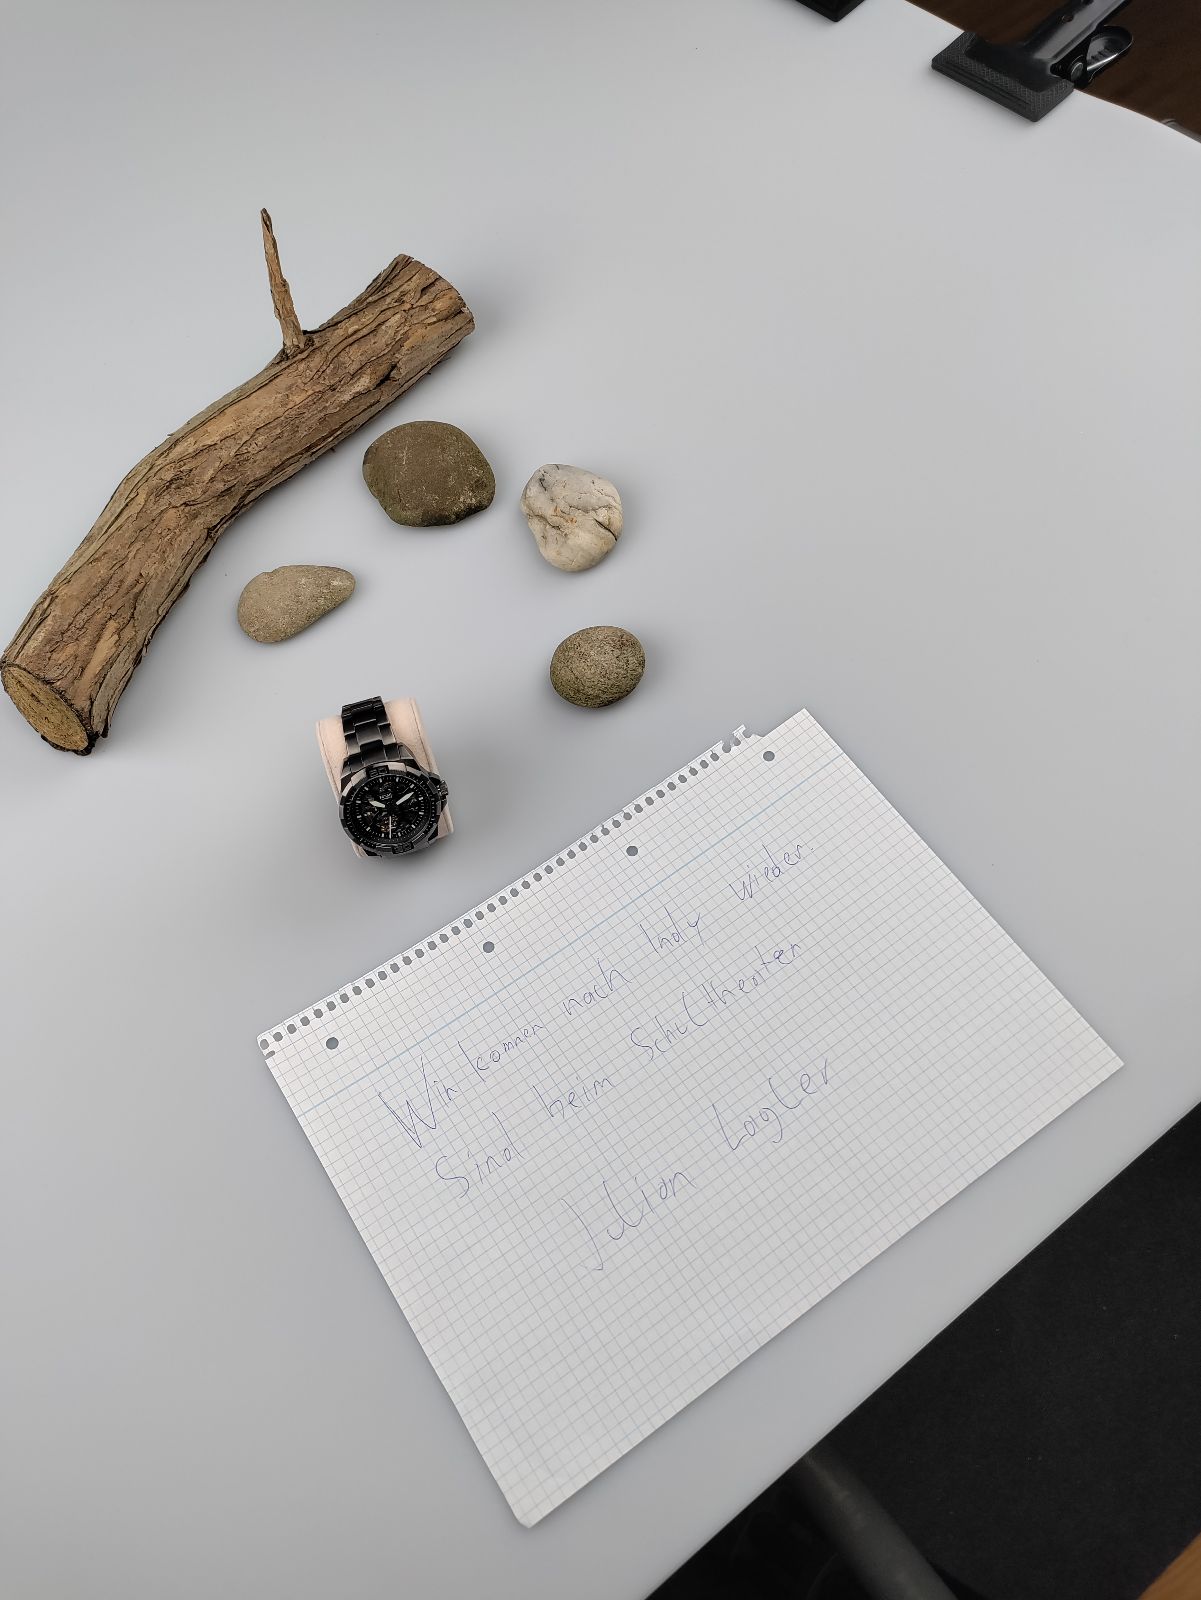 Wir kommen nach Indy wieder.
Sind beim Schultheater
Julian Logler